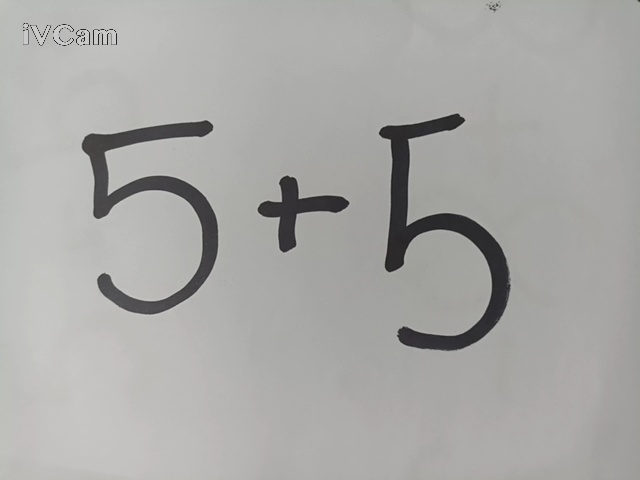 iVCam
5+5